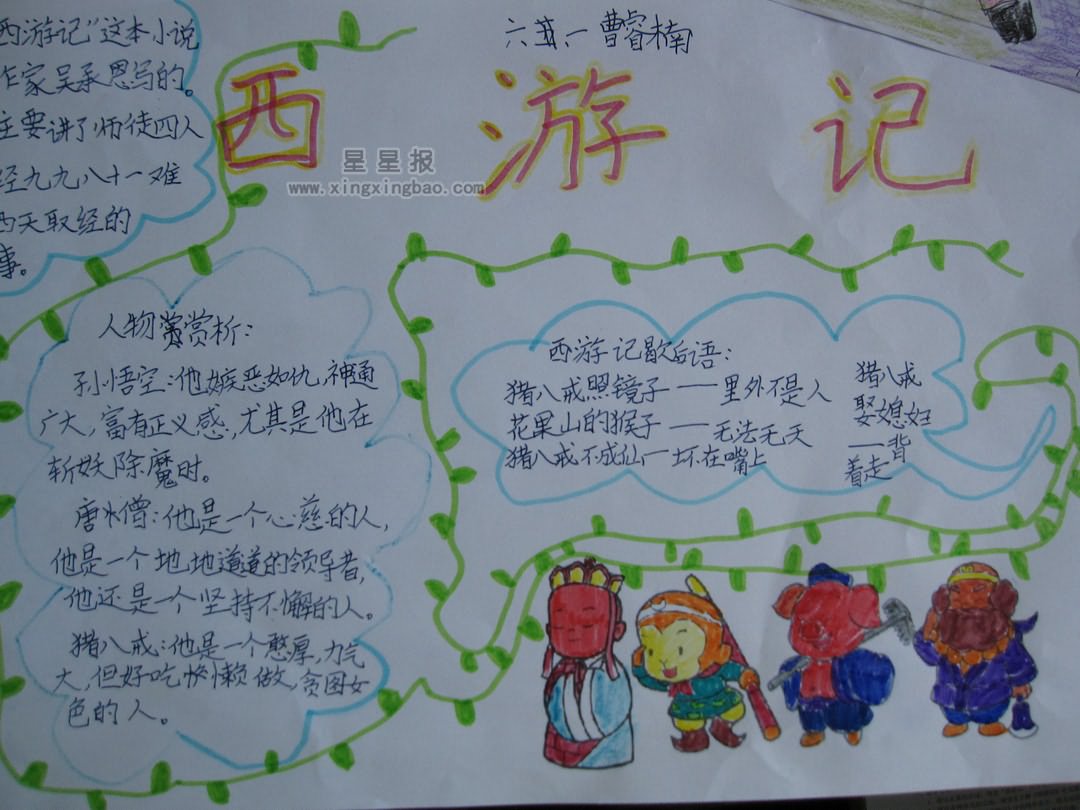 西游记"这本小说
作家吴承恩写的。
主要讲了师徒四人
经九九八十一难
西天取经的
事。
曹睿楠
西游记
星星报
www.xingxingbao.com
人物赏析：
孙悟空：他嫉恶如仇,神通
广大,富有正义感,尤其是他在
斩妖除魔时。
唐僧：他是一个心慈的人,
他是一个地地道道的领导者,
他还是一个坚持不懈的人。
猪八戒：他是一个憨厚,力气
大,但好吃懒做,贪图女
色的人。
西游记歇后语：
猪八戒照镜子——里外不是人
花果山的猴子——无法无天
猪八戒不成仙一坏在嘴上
猪八戒
娶媳妇
——背
着走